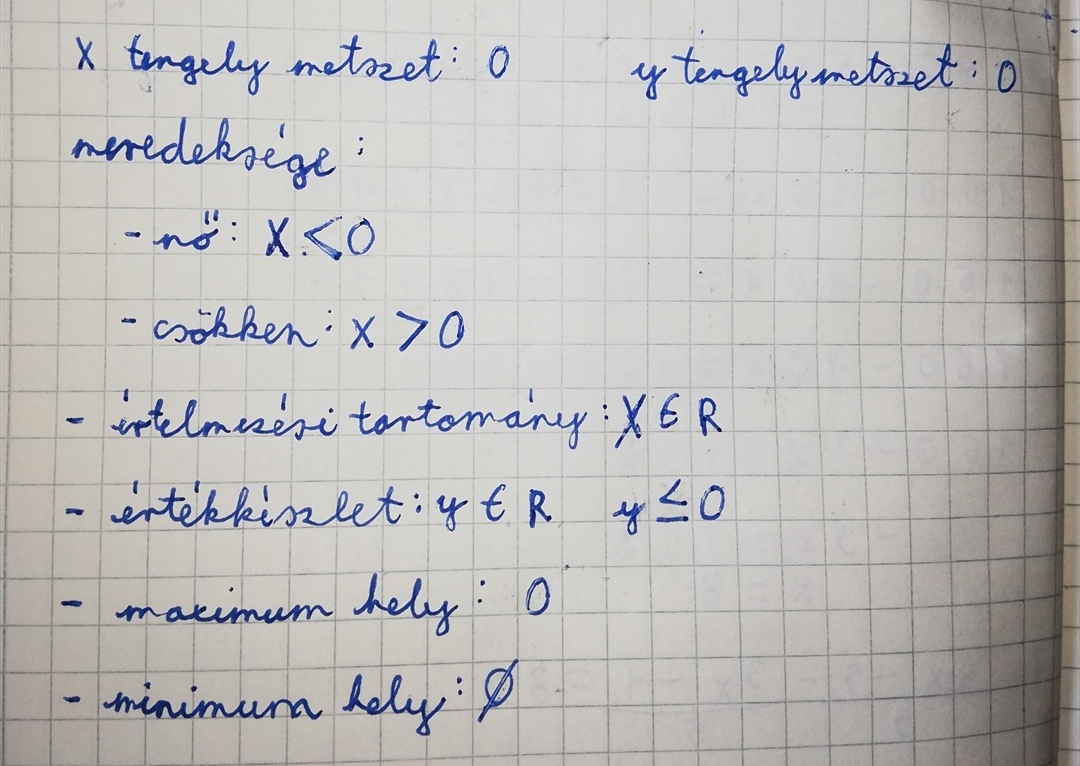 X tengely metszet: 0 y tengelymetszet: 0
meredeksége:
- nő: X < 0
- csökken: x > 0
- értelmezési tartomány: X ∈ R
- értékkészlet: y ∈ R y ≤ 0
- maximum hely: 0
- minimum hely: Ø